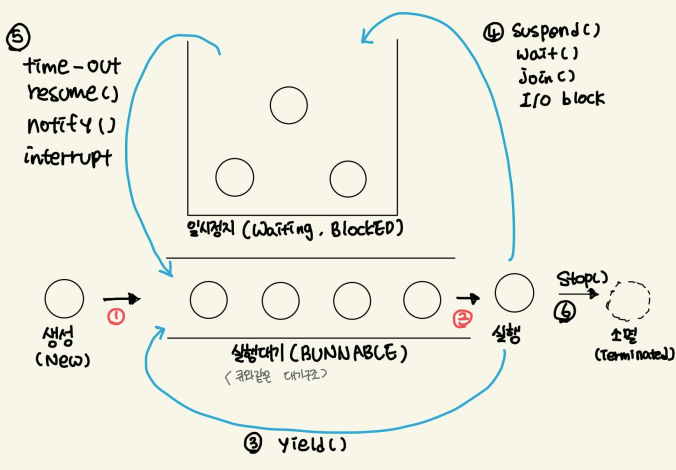 ⑤
time-out
resume()
notify()
interrupt
④ suspend()
wait()
join()
I/O block
일시정지 (Waiting, BlockED)
①
생성
(New)
실행대기 (RUNNABLE)
<큐와같은 대기구조>
②
실행
Stop()
⑥
소멸
(Terminated)
③ yield()